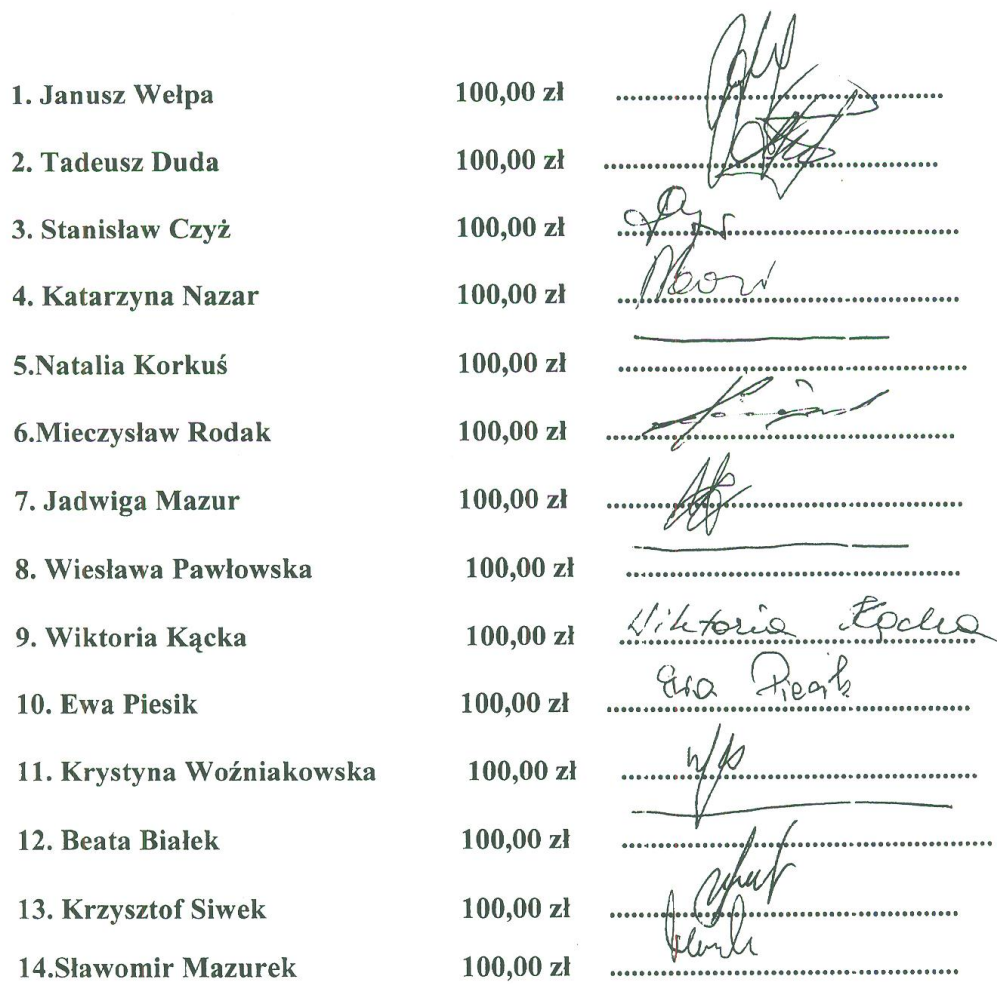 1. Janusz Wełpa 100,00 zł
2. Tadeusz Duda 100,00 zł
3. Stanisław Czyż 100,00 zł
4. Katarzyna Nazar 100,00 zł
5.Natalia Korkuś 100,00 zł
6.Mieczysław Rodak 100,00 zł
7. Jadwiga Mazur 100,00 zł
8. Wiesława Pawłowska 100,00 zł
9. Wiktoria Kącka 100,00 zł Wiktoria Kącka
10. Ewa Piesik 100,00 zł Ewa Piesik
11. Krystyna Woźniakowska 100,00 zł
12. Beata Białek 100,00 zł
13. Krzysztof Siwek 100,00 zł
14.Sławomir Mazurek 100,00 zł